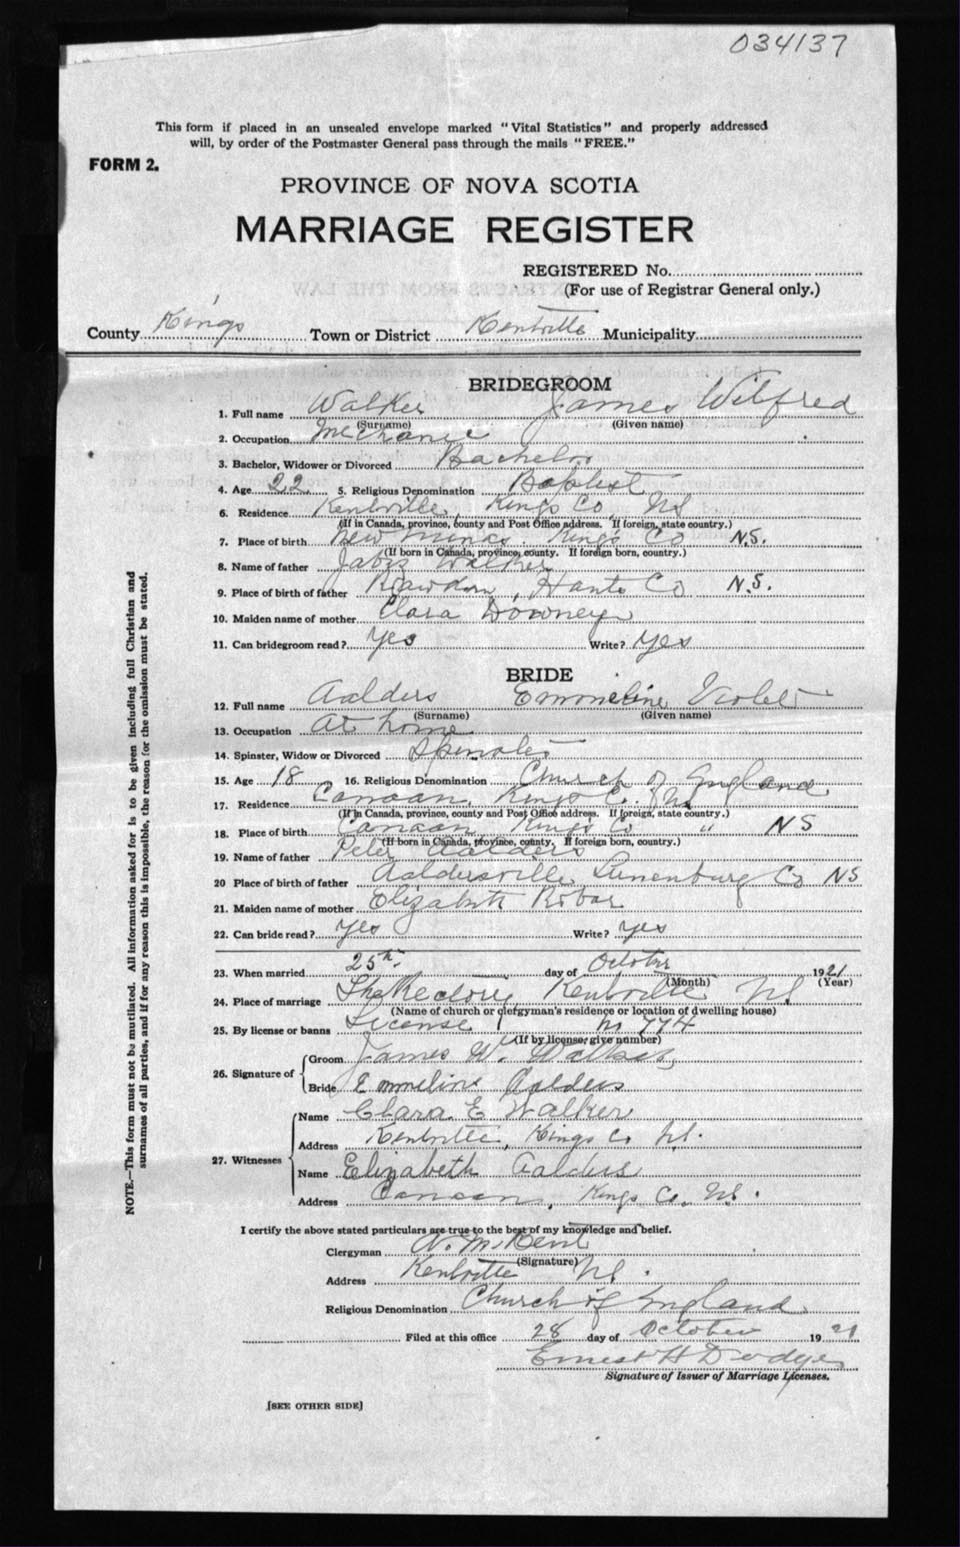 034137
This form if placed in an unsealed envelope marked "Vital Statistics" and properly addressed
will, by order of the Postmaster General pass through the mails "FREE."
FORM 2.
PROVINCE OF NOVA SCOTIA
MARRIAGE REGISTER
REGISTERED No.
(For use of Registrar General only.)
County Kings Town or District Kentville Municipality
BRIDEGROOM
1. Full name Walker James Wilfred
(Surname) (Given name)
2. Occupation Mechanic
3. Bachelor, Widower or Divorced Bachelor
4. Age 22 5. Religious Denomination Baptist
6. Residence Kentville, Kings Co, NS
(If in Canada, province, county and Post Office address. If foreign, state country.)
7. Place of birth New Minas Kings Co N.S.
(If born in Canada, province, county. If foreign born, country.)
8. Name of father Walker
9. Place of birth of father Rawdon, Hants Co N.S.
10. Maiden name of mother Clara Downey
11. Can bridegroom read? yes Write? yes
BRIDE
12. Full name Aalders Emmeline Violet
(Surname) (Given name)
13. Occupation At home
14. Spinster, Widow or Divorced Spinster
15. Age 18 16. Religious Denomination Church of England
17. Residence Canaan Kings Co. NS
(If in Canada, province, county and Post Office address. If foreign, state country.)
18. Place of birth Canaan Kings Co " NS
(If born in Canada, province, county. If foreign born, country.)
19. Name of father Peter Aalders
20 Place of birth of father Aaldersville Lunenburg Co NS
21. Maiden name of mother Elizabeth Robar
22. Can bride read? yes Write? yes
23. When married 25th day of October 1921
(Month) (Year)
24. Place of marriage The Rectory Kentville NS
(Name of church or clergyman's residence or location of dwelling house)
25. By license or banns License No 774
(If by license, give number)
26. Signature of Groom James W. Walker
Bride Emmeline Aalders
27. Witnesses Name Clara E Walker
Address Kentville, Kings Co NS.
Name Elizabeth Aalders
Address Canaan, Kings Co. NS.
I certify the above stated particulars are true to the best of my knowledge and belief.
Clergyman
(Signature)
Address Kentville NS.
Religious Denomination Church of England
Filed at this office 28 day of October 1921
Ernest H Dodge
Signature of Issuer of Marriage Licenses.
[SEE OTHER SIDE]
NOTE.—This form must not be mutilated. All information asked for is to be given including full Christian and
surnames of all parties, and if for any reason this is impossible, the reason for the omission must be stated.